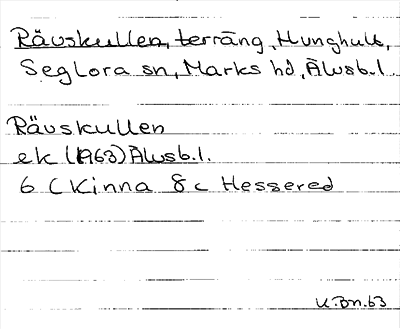 Rävskullen, terräng, Hunghult,
Seglora sn, Marks hd, Älvsb.l.
Rävskullen
ek (1963) Älvsb.l.
6 C Kinna 8 c Hessered
U.Bn.63